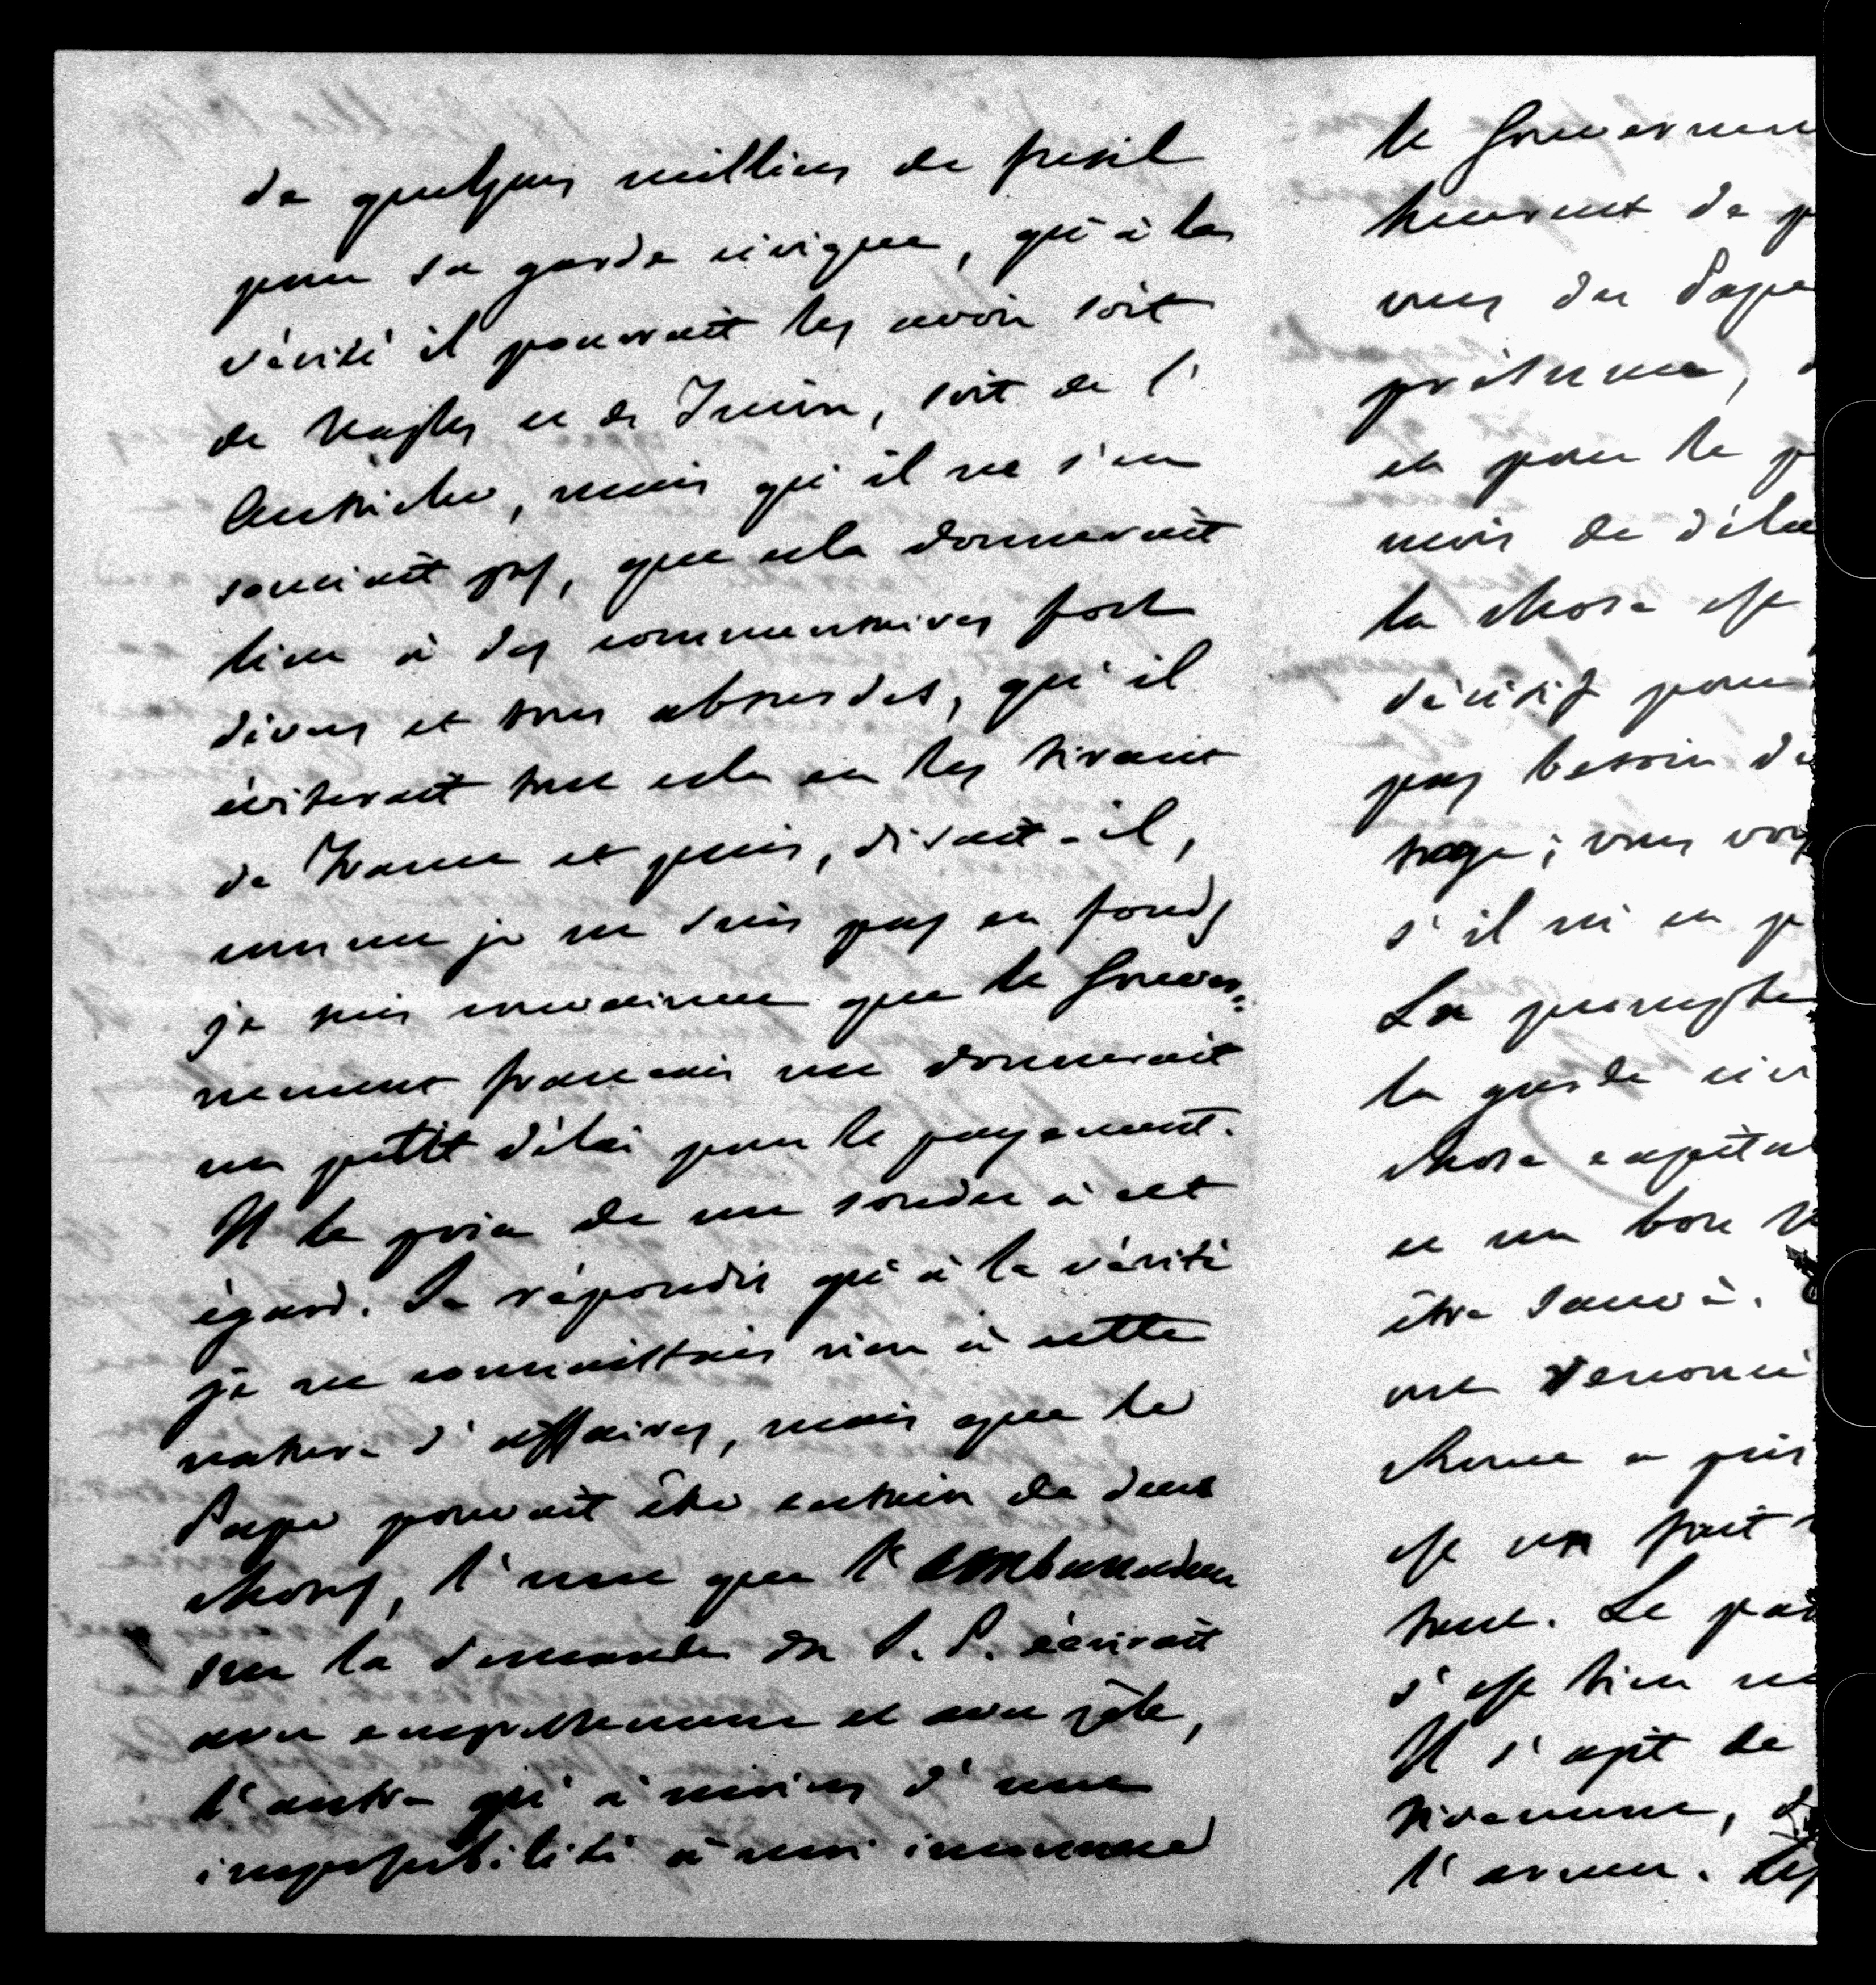 de quelques milliers de fusil
pour sa garde civique, qu'à la
vérité il pourrait les avoir soit
de Naples ou de Turin, soit de l'
Autriche, mais qu'il ne s'en
souciait pas, que cela donnerait
lieu à des commentaires fort
divers et tous absurdes, qu'il
éviterait tout cela en les tirant
de France et puis, disait-il,
comme je ne suis pas en fonds
je suis convaincu que le Gouver=
nement francais me donnerait
un petit délai pour le payement.
Il le pria de me sonder à cet
égard. Je répondis qu'à la vérité
je ne connaissais rien à cette
nature d'affaires, mais que le
Pape pouvait être certain de deux
choses, l'une que l'ambassadeur
sur la demande du S. P. écrirait
avec empressement et avec zèle,
l'autre qu'à moins d'une
impossibilité à moi inconnue
le Gouvernem
heureux de p
vues du Pape
présume,
et pour le p
mois de déla
la chose est
décisif pour
pas besoin de
tage; vous voy
s'il m'en p
La prompte
la garde civ
chose capital
et un bon
être sauvé.
ont renoncé
chume a pris
est un fait
tout. Le pa
s'est bien
Il s'agit de
tivement,
l'armer. Les